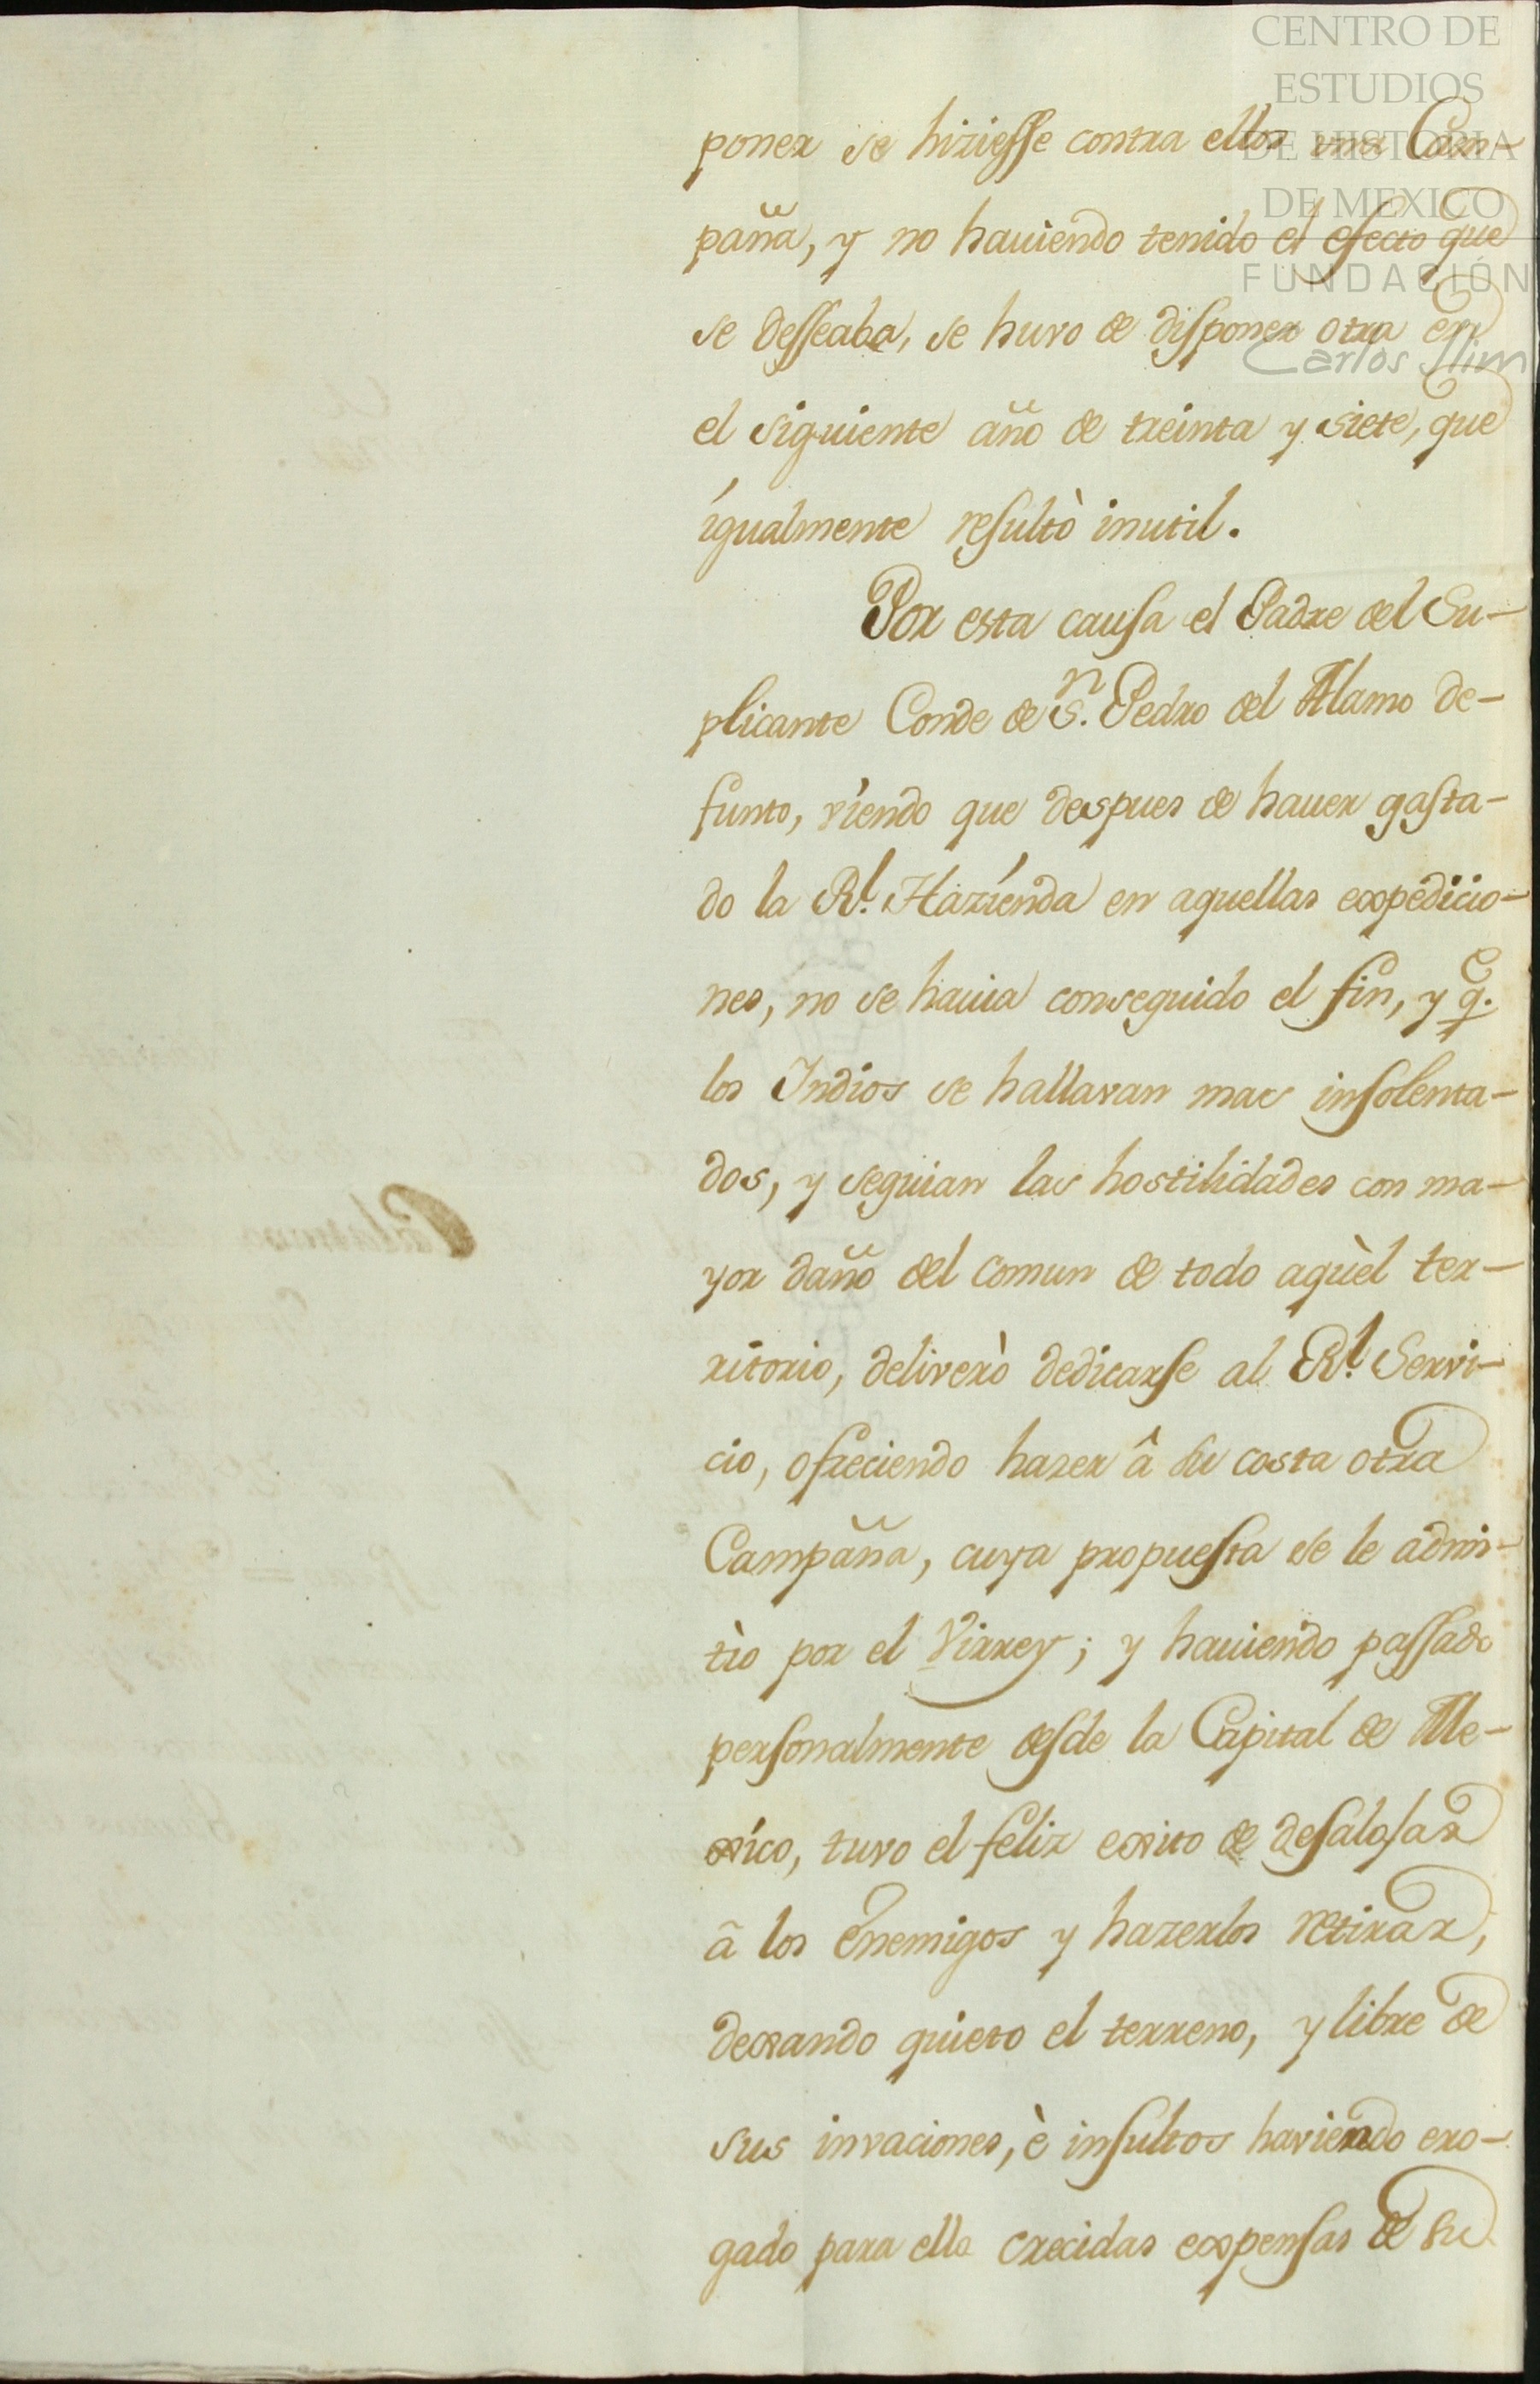 CENTRO DE
ESTUDIOS
DE HISTORIA
DE MEXICO
FUNDACIÓN
Carlos Slim
poner se hiziesse contra ellos una Cam-
paña, y no hauiendo tenido el efecto que
se desseaba, se huvo de disponer otra en
el siguiente año de treinta y siete, que
igualmente resultò inutil.
Por esta causa el Padre del Su-
plicante Conde de S.n Pedro del Alamo de-
funto, viendo que despues de hauer gasta-
do la Rl. Hazienda en aquellas expedicio-
nes, no se hauia conseguido el fin, y q.e
los Indios se hallavan mas insolenta-
dos, y seguian las hostilidades con ma-
yor daño del comun de todo aquèl ter-
ritorio, deliverò dedicarse al Rl. Servi-
cio, ofreciendo hazer â su costa otra
Campaña, cuya propuesta se le admi-
tìo por el Virrey; y hauiendo passado
personalmente desde la Capital de Me-
xico, tuvo el feliz exito de desalojar
â los Enemigos y hazerlos retirar,
dexando quieto el terreno, y libre de
sus invaciones, è insultos haviendo ero-
gado para ello crecidas expensas de su